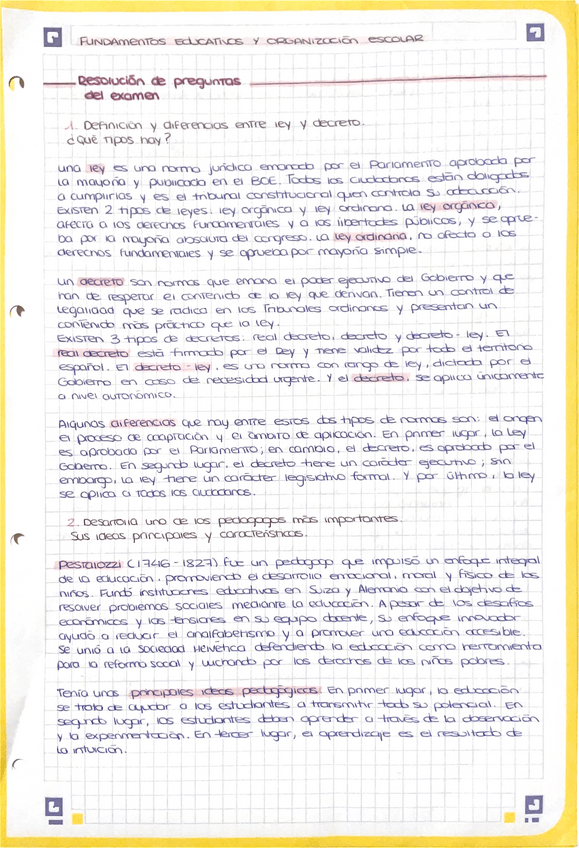 FUNDAMENTOS EDUCATIVOS Y ORGANIZACIÓN ESCOLAR
Resolución de preguntas
del examen
1. Definición y diferencias entre ley y decreto.
¿Qué tipos hay?
una ley es una norma jurídica emanada por el Parlamento aprobada por
la mayoría y publicada en el BOE. Todos los ciudadanos están obligados
a cumplirlas y es el tribunal constitucional quien controla su adecuación.
Existen 2 tipos de leyes: ley orgánica y ley ordinaria. La ley orgánica,
afecta a los derechos fundamentales y a las libertades públicas, y se aprue-
ba por la mayoría absoluta del congreso. La ley ordinaria, no afecta a los
derechos fundamentales y se aprueba por mayoría simple.
Un decreto son normas que emana el poder ejecutivo del Gobierno y que
han de respetar el contenido de la ley que derivan. Tienen un control de
legalidad que se radica en los Tribunales ordinarios y presentan un
contenido más práctico que la ley.
Existen 3 tipos de decretos: real decreto, decreto y decreto-ley. El
real decreto está firmado por el Rey y tiene validez por todo el territorio
español. El decreto-ley, es una norma con rango de ley, dictada por el
Gobierno en caso de necesidad urgente. Y el decreto, se aplica únicamente
a nivel autonómico.
Algunas diferencias que hay entre estos dos tipos de normas son: el origen
el proceso de adaptación y el ámbito de aplicación. En primer lugar, la ley
es aprobada por el Parlamento; en cambio, el decreto, es aprobado por el
Gobierno. En segundo lugar, el decreto tiene un carácter ejecutivo; sin
embargo, la ley tiene un carácter legislativo formal. Y por último, la ley
se aplica a todos los ciudadanos.
2. Desarrolla uno de los pedagogos más importantes.
Sus ideas principales y características.
Pestalozzi (1746-1827) fue un pedagogo que impulsó un enfoque integral
de la educación, promoviendo el desarrollo emocional, moral y físico de los
niños. Fundó instituciones educativas en Suiza y Alemania con el objetivo de
resolver problemas sociales mediante la educación. A pesar de los desafíos
económicos y las tensiones en su equipo docente, su enfoque innovador
ayudó a reducir el analfabetismo y a promover una educación accesible.
Se unió a la Sociedad Helvética defendiendo la educación como herramienta
para la reforma social y luchando por los derechos de los niños pobres.
Tenía unas principales ideas pedagógicas. En primer lugar, la educación
se trata de ayudar a los estudiantes a transmitir todo su potencial. En
segundo lugar, los estudiantes deben aprender a través de la observación
y la experimentación. En tercer lugar, el aprendizaje es el resultado de
la intuición.